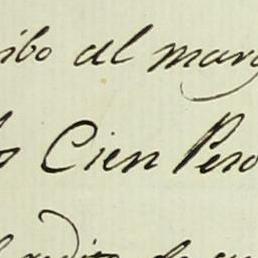 ibo al marq
s Cien Peso
redito de su